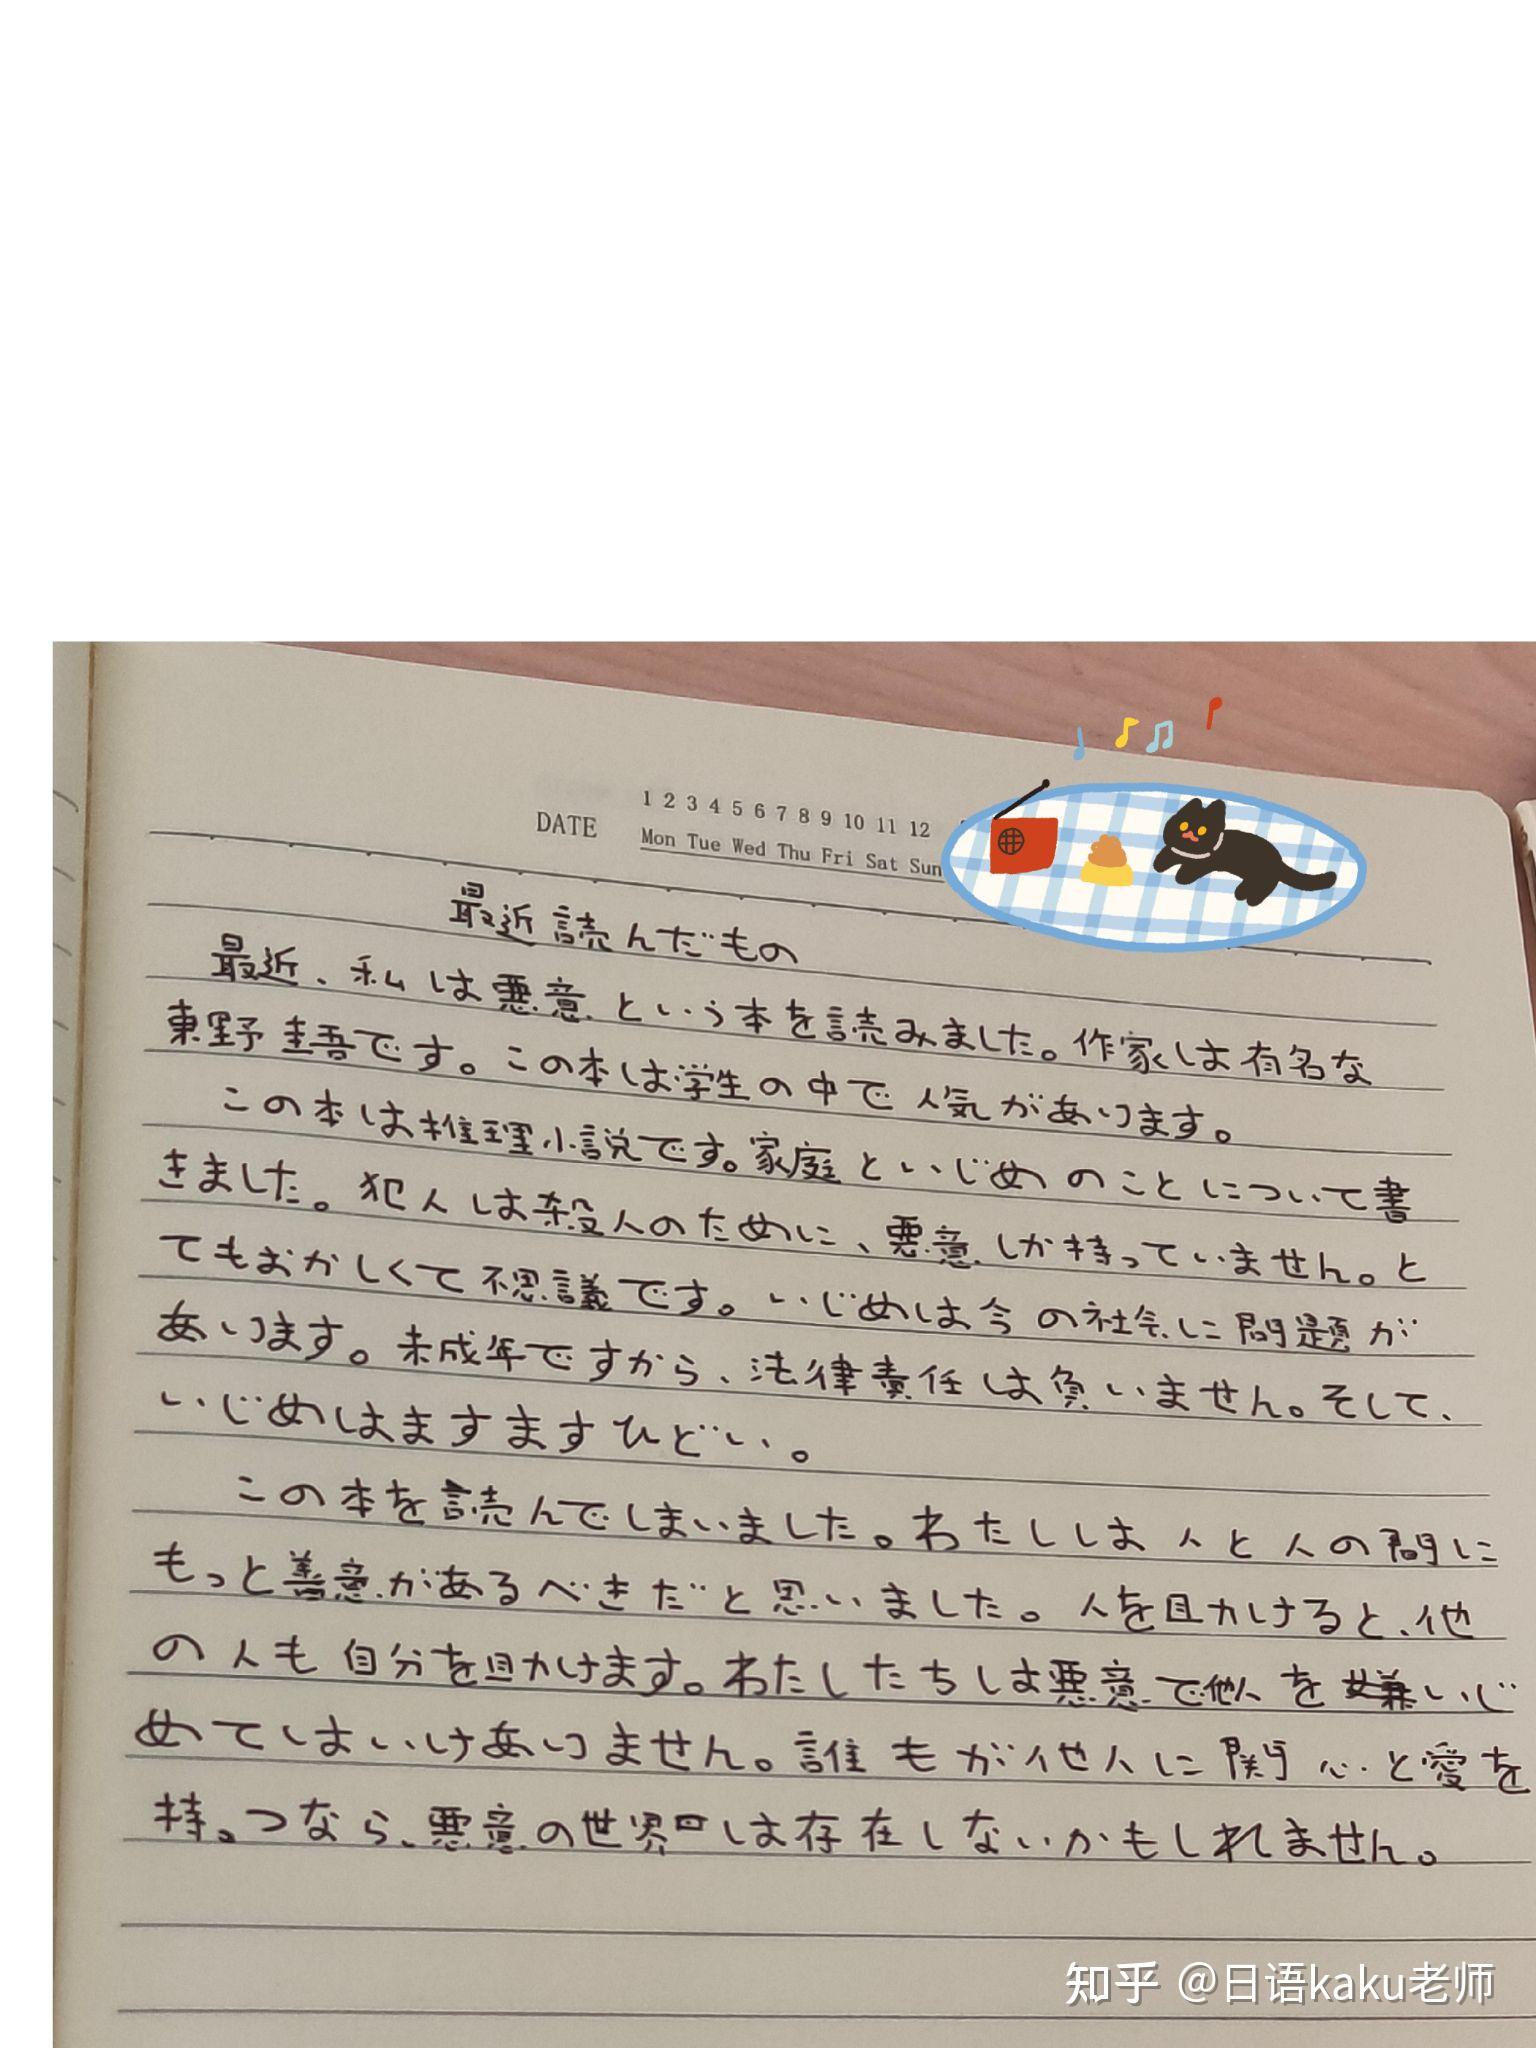 1 2 3 4 5 6 7 8 9 10 11 12
DATE
Mon Tue Wed Thu Fri Sat Sun
最近読んだもの
最近、私は悪意という本を読みました。作家は有名な
東野圭吾です。この本は学生の中で人気があります。
この本は推理小説です。家庭といじめのことについて書
きました。犯人は殺人のために、悪意しか持っていません。と
てもおかしくて不思議です。いじめは今の社会に問題が
あります。未成年ですから、法律責任は負いません。そして、
いじめはますますひどい。
この本を読んでしまいました。わたしは人と人の間に
もっと善意があるべきだと思いました。人を助けると、他
の人も自分を助けます。わたしたちは悪意で他人を嫌いじ
めてはいけありません。誰もが他人に関心と愛を
持つなら、悪意の世界は存在しないかもしれません。
知乎 @日语kaku老师